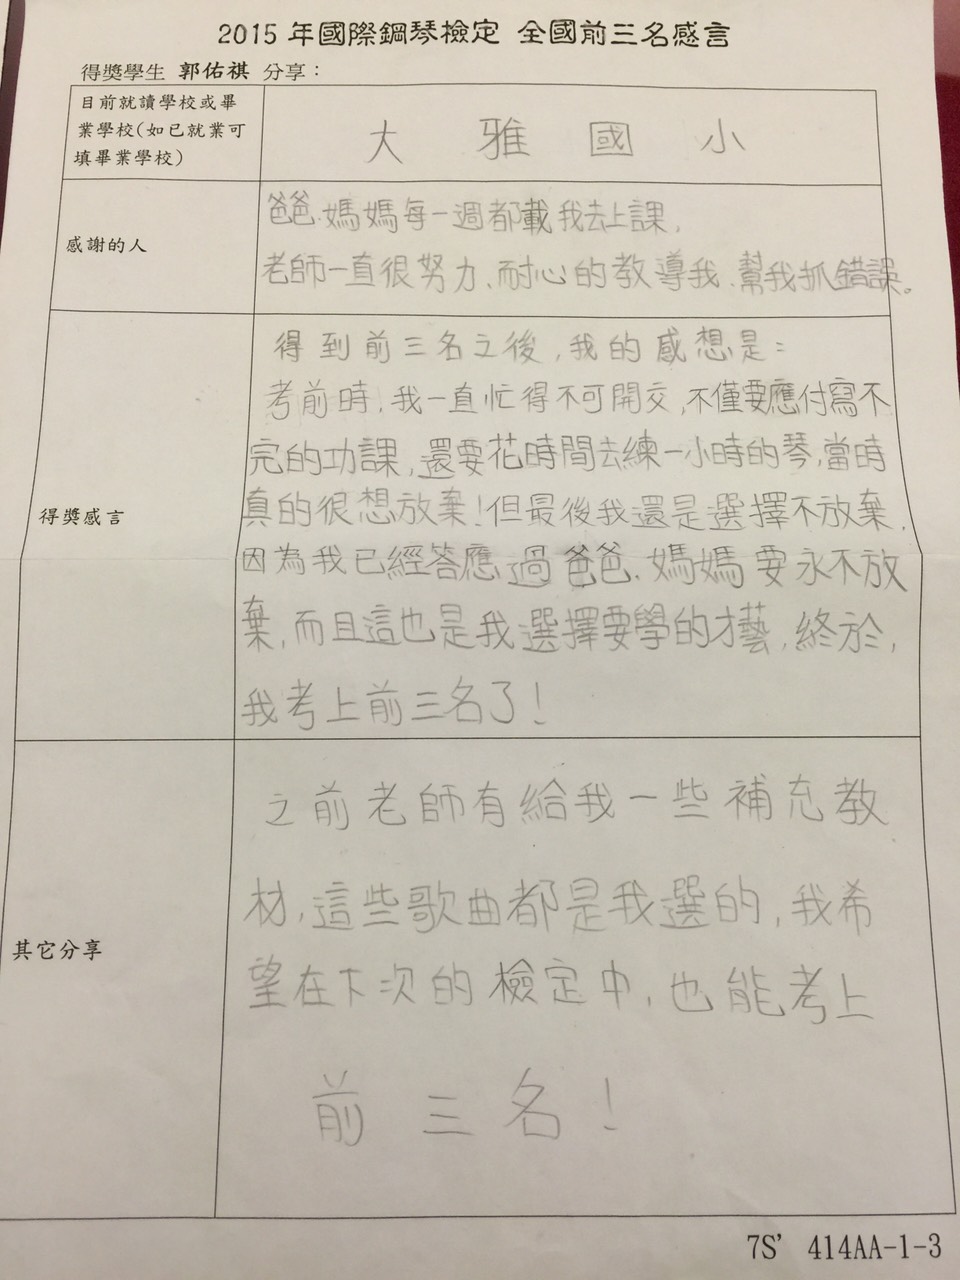 2015 年國際鋼琴檢定 全國前三名感言
得獎學生 郭佑祺 分享：
目前就讀學校或畢
業學校(如已就業可
填畢業學校)
大 雅 國 小
感謝的人
爸爸、媽媽每一週都載我去上課，
老師一直很努力、耐心的教導我、幫我抓錯誤。
得獎感言
得到前三名之後，我的感想是：
考前時，我一直忙得不可開交，不僅要應付寫不
完的功課，還要花時間去練一小時的琴，當時
真的很想放棄！但最後我還是選擇不放棄，
因為我已經答應過爸爸、媽媽要永不放
棄，而且這也是我選擇要學的才藝，終於，
我考上前三名了！
其它分享
之前老師有給我一些補充教
材，這些歌曲都是我選的，我希
望在下次的檢定中，也能考上
前三名！
7S' 414AA-1-3